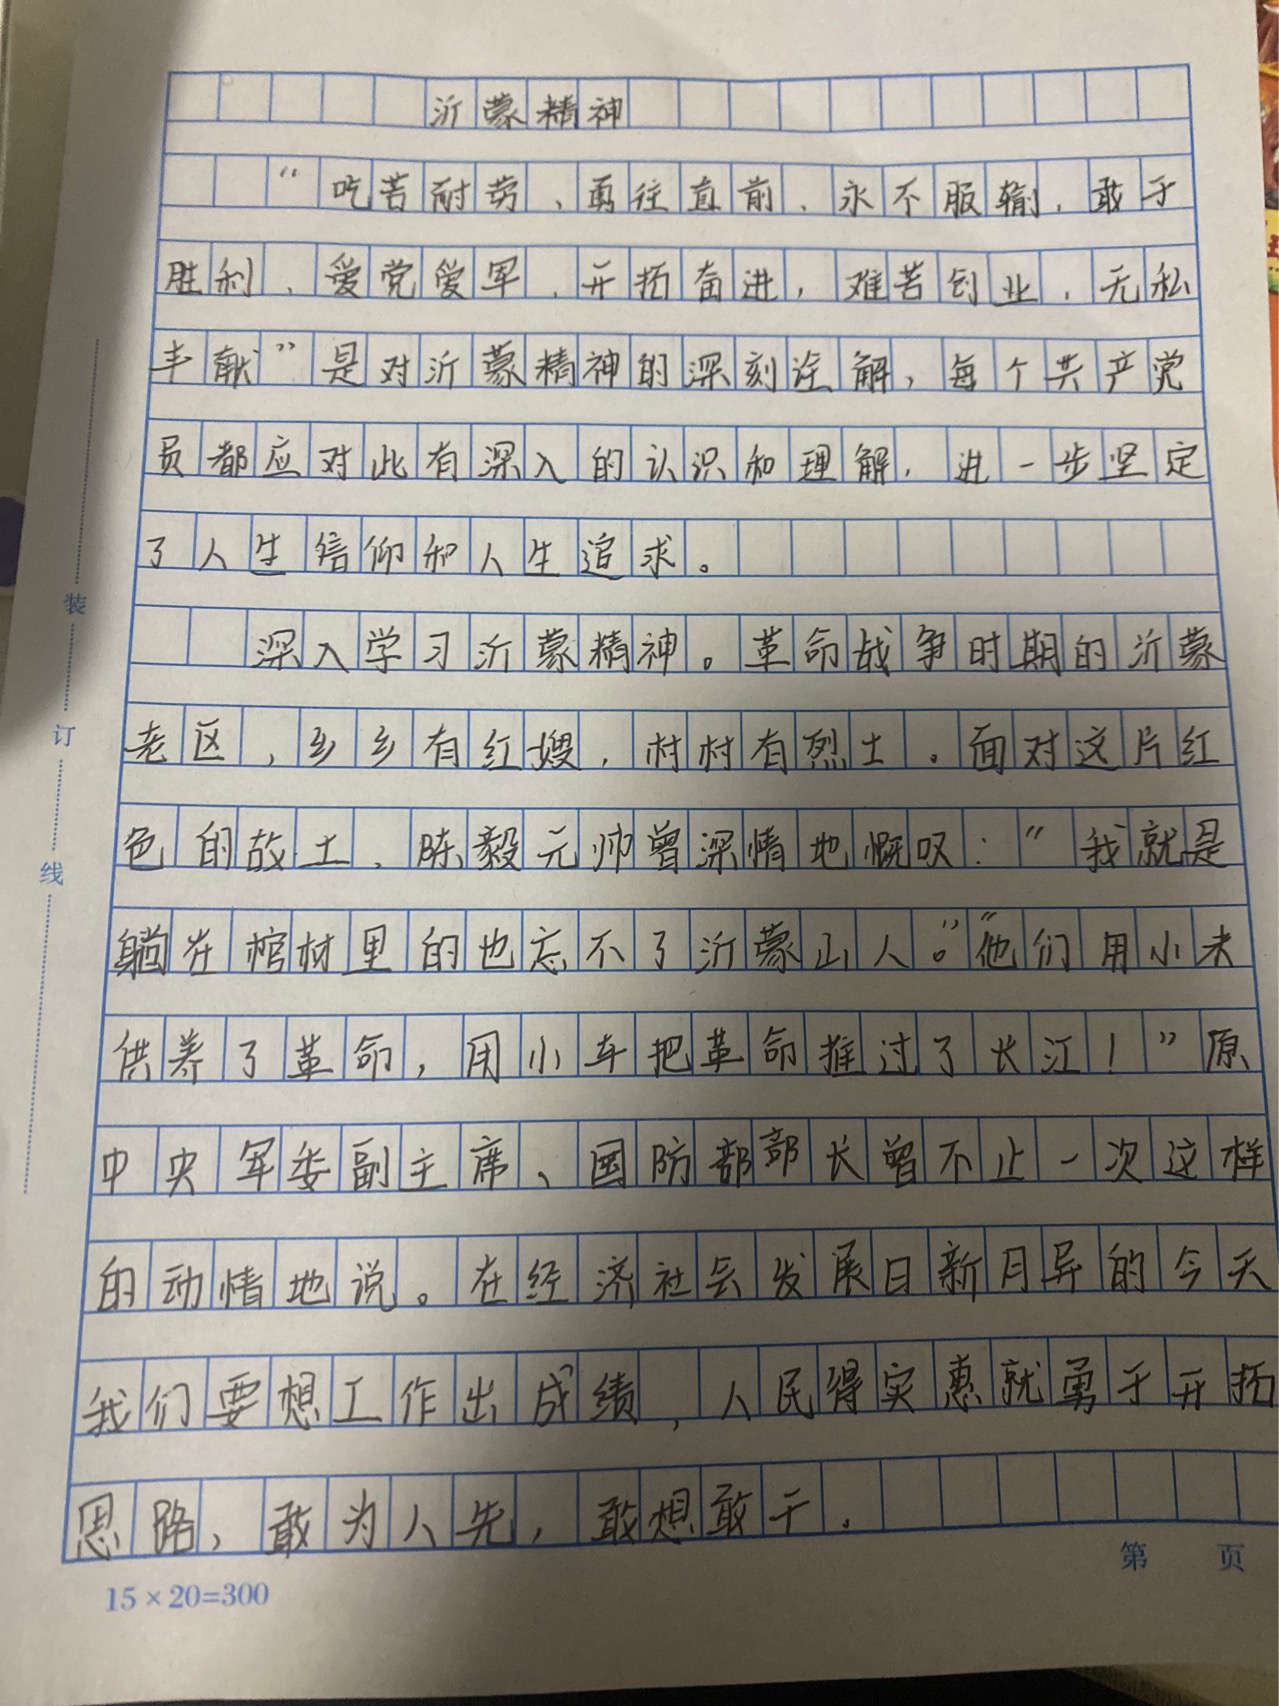 沂蒙精神
“吃苦耐劳、勇往直前、永不服输、敢于
胜利、爱党爱军、开拓奋进，难苦创业、无私
丰献”是对沂蒙精神的深刻诠解，每个共产党
员都应对此有深入的认识和理解，进一步坚定
了人生信仰和人生追求。
深入学习沂蒙精神。革命战争时期的沂蒙
老区，乡乡有红嫂，村村有烈士。面对这片红
色的故土、陈毅元帅曾深情地慨叹：“我就是
躺在棺材里的也忘不了沂蒙山人。”“他们用小米
供养了革命，用小车把革命推过了长江！”原
中央军委副主席、国防部部长曾不止一次这样
的动情地说。在经济社会发展日新月异的今天
我们要想工作出成绩，人民得实惠就勇于开拓
思路，敢为人先，敢想敢干。
装
订
线
15×20=300
第 页